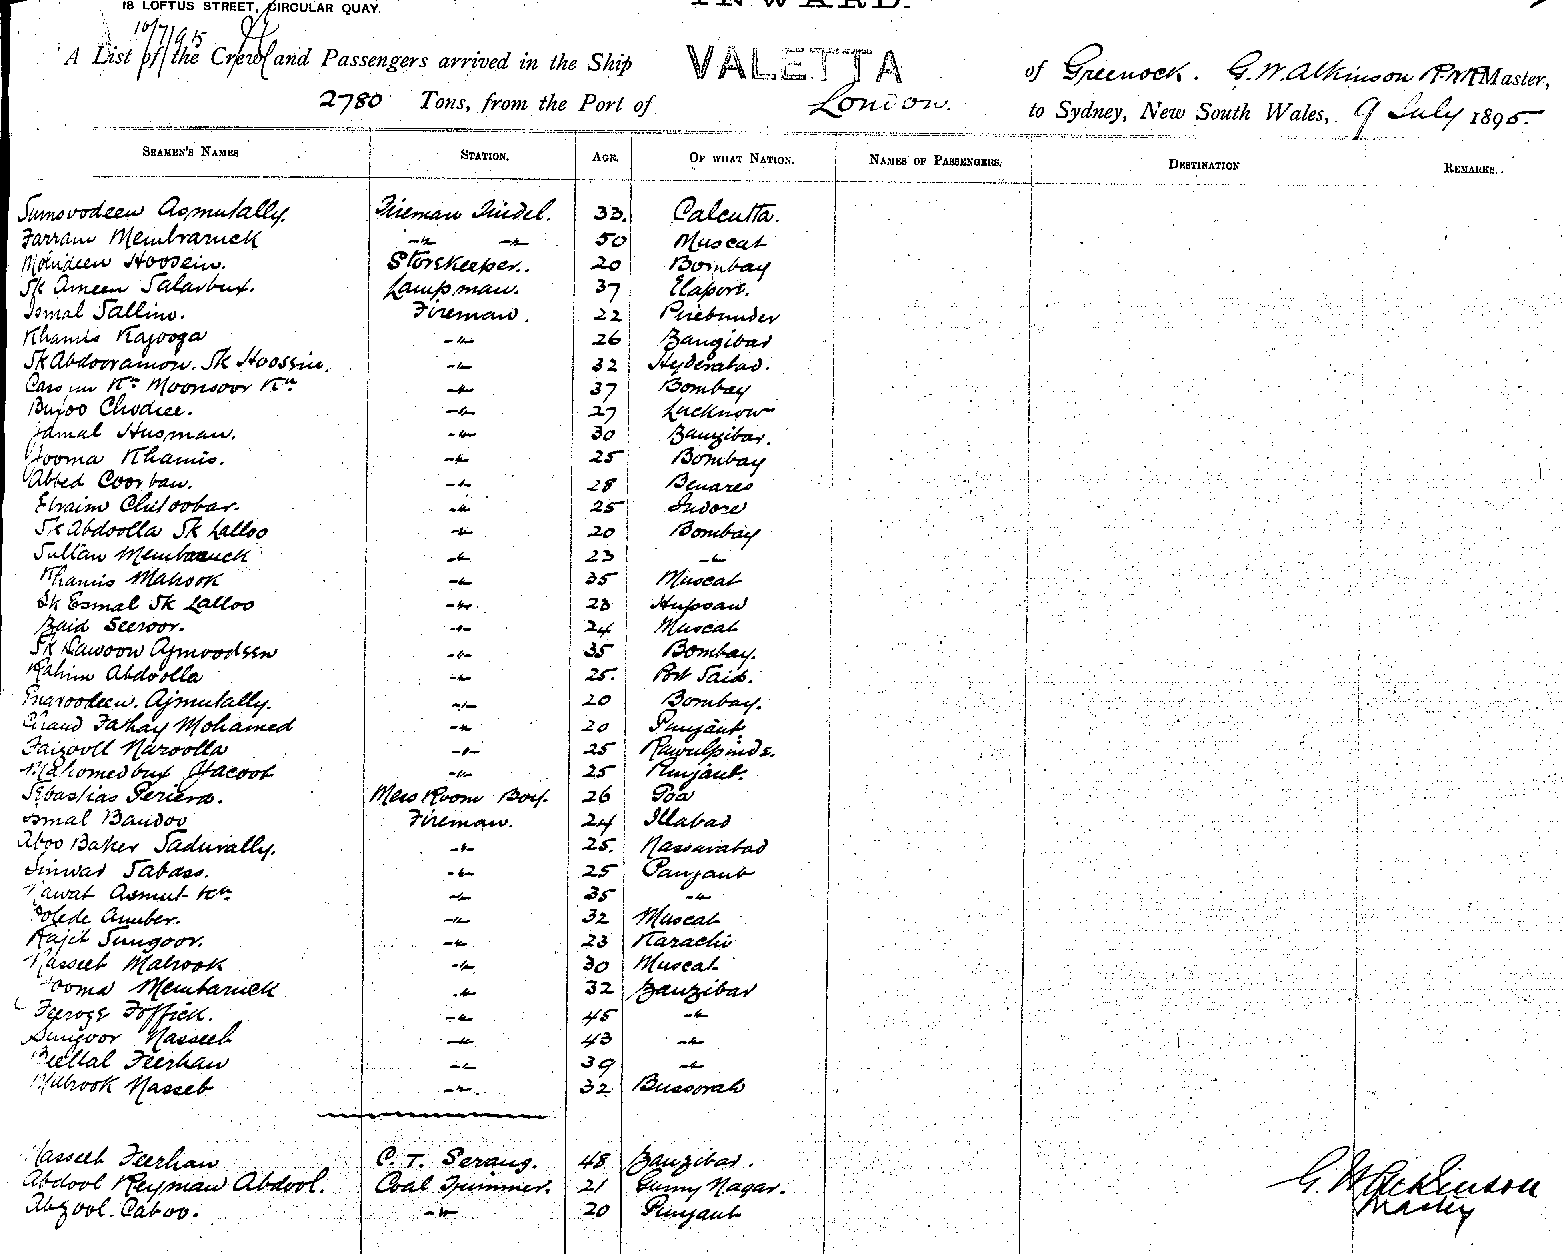 18 LOFTUS STREET, CIRCULAR QUAY.
INWARD.
10/7/95
A List of the Crew and Passengers arrived in the Ship VALETTA of Greenock. G. W. Atkinson RNR Master,
2780 Tons, from the Port of London. to Sydney, New South Wales, 9 July 1895.
SEAMEN'S NAMES STATION. AGE. OF WHAT NATION. NAMES OF PASSENGERS. DESTINATION REMARKS.
Sumsoodeen Asmutally. Fireman Tindel. 33. Calcutta.
Farram Membraruck -"- -"- 50 Muscat
Moudeen Hoosein. Storekeeper. 20 Bombay
Sk Ameen Salarbux. Lampman. 37 Elapore.
Ismal Sallim. Fireman. 22 Purebunder
Khamis Kajooga -"- 26 Zangibar
Sk Abdooramon. Sk Hoossin. -"- 32 Hyderabad.
Cassum Kn Moonsoor Kn -"- 37 Bombay
Bujoo Chodiee. -"- 27 Lucknow
Jamal Husman. -"- 30 Zanzibar.
Jooma Khamis. -"- 25 Bombay
Abbed Coorban. -"- 28 Benares
Ebraim Chitoobar. -"- 25 Indore
Sk Abdoolla Sk Lalloo -"- 20 Bombay
Sultan Membaruck -"- 23 -"-
Khamis Mabrook -"- 35 Muscat
Sk Esmal Sk Lalloo -"- 23 Hupsan
Zaid Seeroor. -"- 24 Muscat
Sk Dawoon Ajmoodeen -"- 35 Bombay.
Rahim Abdoolla -"- 25. Port Said.
Ajmutally. -"- 20 Bombay.
Fathay Mohamed -"- 20 Punjaub
Faizooll Naroolla -"- 25 Rawulpinde.
Mahomedbux Yacoob -"- 25 Punjaub.
Sebastias Periera. Mess Room Boy. 26 Goa
Ismal Bandoo Fireman. 24 Illabad
Aboo Baker Sadurally. -"- 25. Nassurabad
Sinwad Sabass. -"- 25 Panjaub
Nawab Asmut Kn -"- 35 -"-
Amber. -"- 32 Muscat
Rajib Sungoor. -"- 23 Karachi
Nasseeb Mabrook -"- 30 Muscat
Jooma Membaruck -"- 32 Zanzibar
Feeroze Toffick. -"- 45 -"-
Sungoor Nasseeb -"- 43 -"-
Beellal Feerhan -"- 39 -"-
Mabrook Nasseb -"- 32 Bussorah
Nasseeb Feerhan C. T. Serang. 48 Zanzibar.
Abdool Reyman Abdool. Coal Trimmer. 21 Gunny Nagar.
Abzool Caboo. -"- 20 Punjaub
G. W. Atkinson
Master